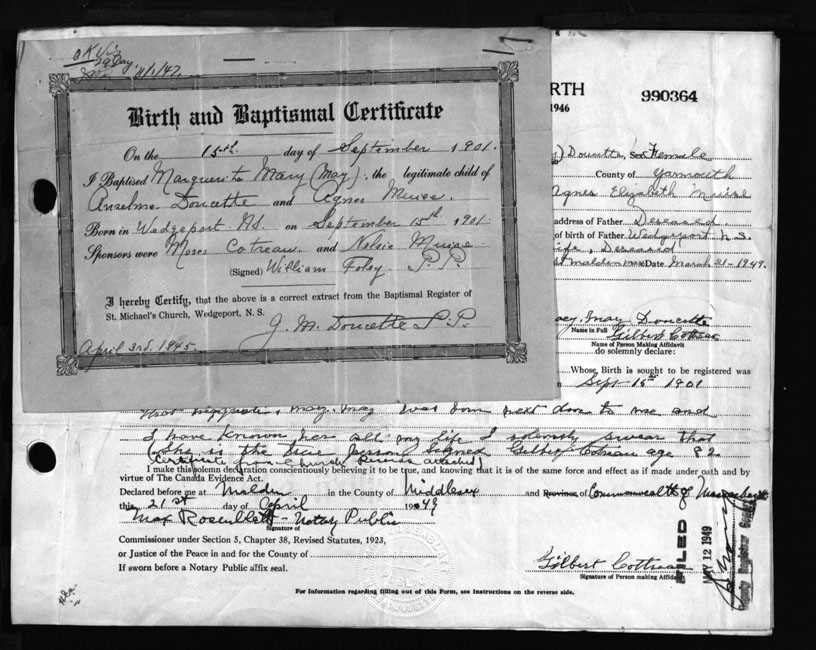 OK
21/1/47
Birth and Baptismal Certificate
On the 15th day of September 1901.
I Baptised Marguerite Mary (May), the legitimate child of
Anselme Doucette and Agnes Muise.
Born in Wedgeport N.S. on September 15th 1901.
Sponsors were Moses Cotreau and Muise
(Signed) William Foley P.P.
I hereby Certify, that the above is a correct extract from the Baptismal Register of
St. Michael's Church, Wedgeport, N. S.
J. M. Doucette P.P.
April 3rd, 1945.
RTH
1946
990364
) Doucette, Sex Female
County of Yarmouth
Agnes Elizabeth Muise
address of Father Deseased
of birth of Father Wedgeport N.S.
ife, Deseased
Malden Mass Date March 21-1949.
May Doucette
Name in Full
Gilbert Cottreau
Name of Person Making Affidavit
do solemnly declare:
Whose, Birth is sought to be registered was
n Sept 15th 1901
that May was born next door to me and
I have known her all my life I solemnly swear that
she is the true person Signed Gilbert age 82
(Certificate from Church Records attached)
I make this solemn declaration conscientiously believing it to be true, and knowing that it is of the same force and effect as if made under oath and by
virtue of The Canada Evidence Act.
Declared before me at Malden in the County of Middlesex and Province of Commonwealth of Massachusetts
this 21st day of April 1949
Max Rosenblatt - Notary Public
Signature of
Commissioner under Section 5, Chapter 38, Revised Statutes, 1923,
or Justice of the Peace in and for the County of
If sworn before a Notary Public affix seal.
Gilbert Cottreau
Signature of Person making Affidavit
FILED
MAY 12 1949
Deputy Registrar General
For Information regarding filling out of this Form, see Instructions on the reverse side.